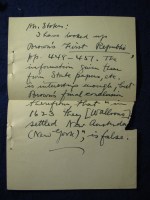 Mr. Stokes:
I have looked up
Brown's First Republic
pp. 449-457. The
information given from
State papers, etc.
is interesting enough, but
Brown's final conclusion
therefrom, that in
1623 they [Walloons]
settled New Amsterdam
(New York)", is false.